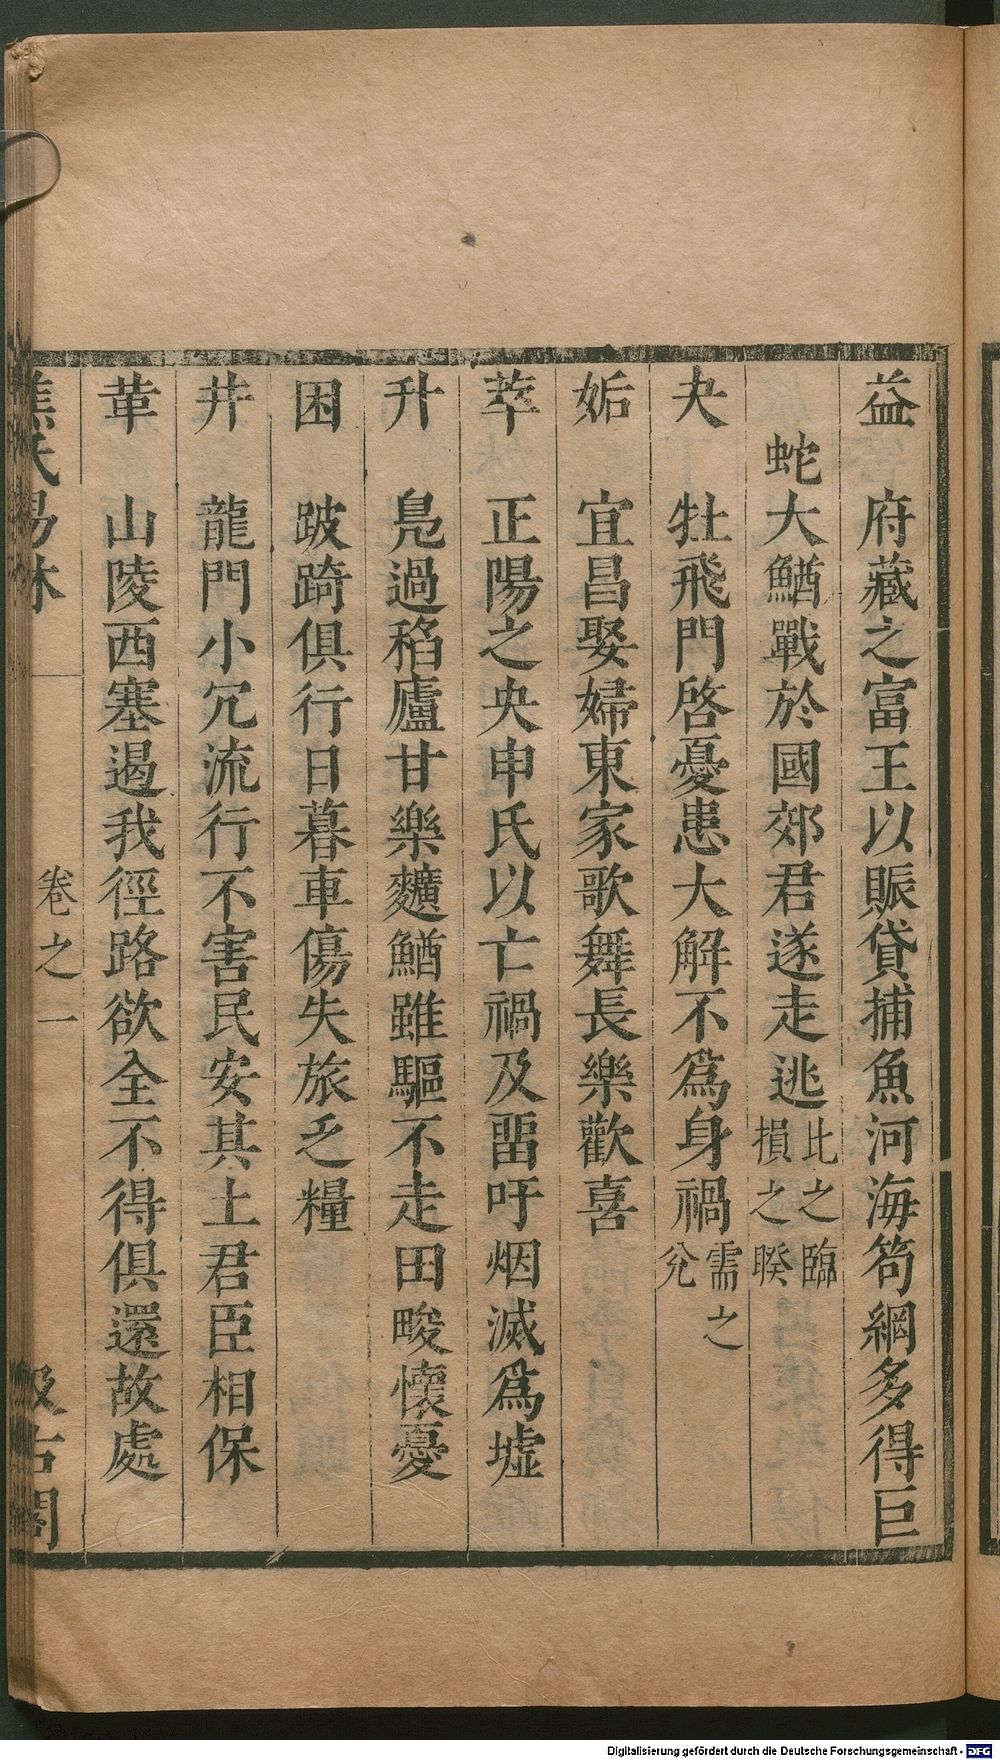 益　府藏之富王以賑貸捕魚河海笱網多得巨
蛇大鰌戰於國郊君遂走逃比之臨損之睽
夬　牡飛門啓憂患大解不爲身禍需之兊
姤　宜昌娶婦東家歌舞長樂歡喜
萃　正陽之央申氏以亡禍及畱吁烟滅爲墟
升　鳧過稻廬甘樂䵃鰌雖驅不走田畯懷憂
困　跛踦俱行日暮車傷失旅乏糧
井　龍門小冗流行不害民安其土君臣相保
革　山陵西塞遏我徑路欲全不得俱還故處
焦氏易林　卷之一　汲古閣
Digitalisierung gefördert durch die Deutsche Forschungsgemeinschaft - DFG